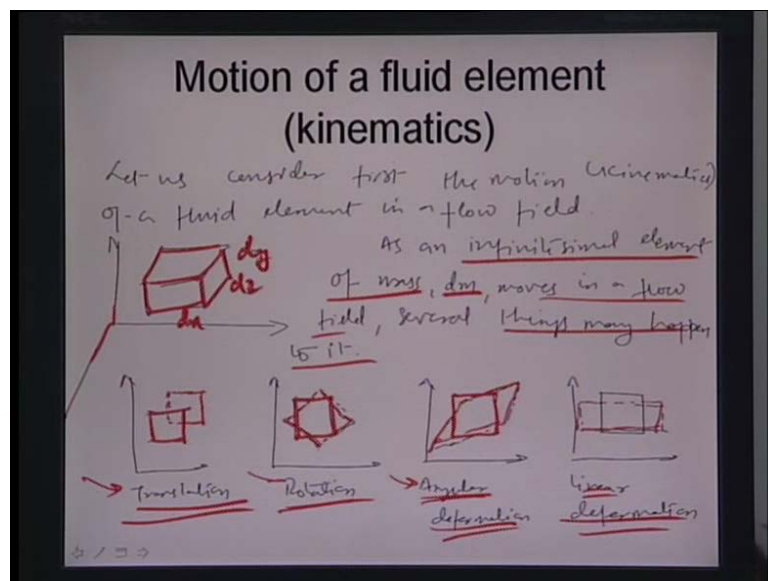 Motion of a fluid element
(kinematics)
Let us consider first the motion (kinematics)
of a fluid element in a flow field.
As an infinitesimal element
of mass, dm, moves in a flow
field, several things may happen
to it.
dy
dz
dx
Translation
Rotation
Angular
deformation
Linear
deformation